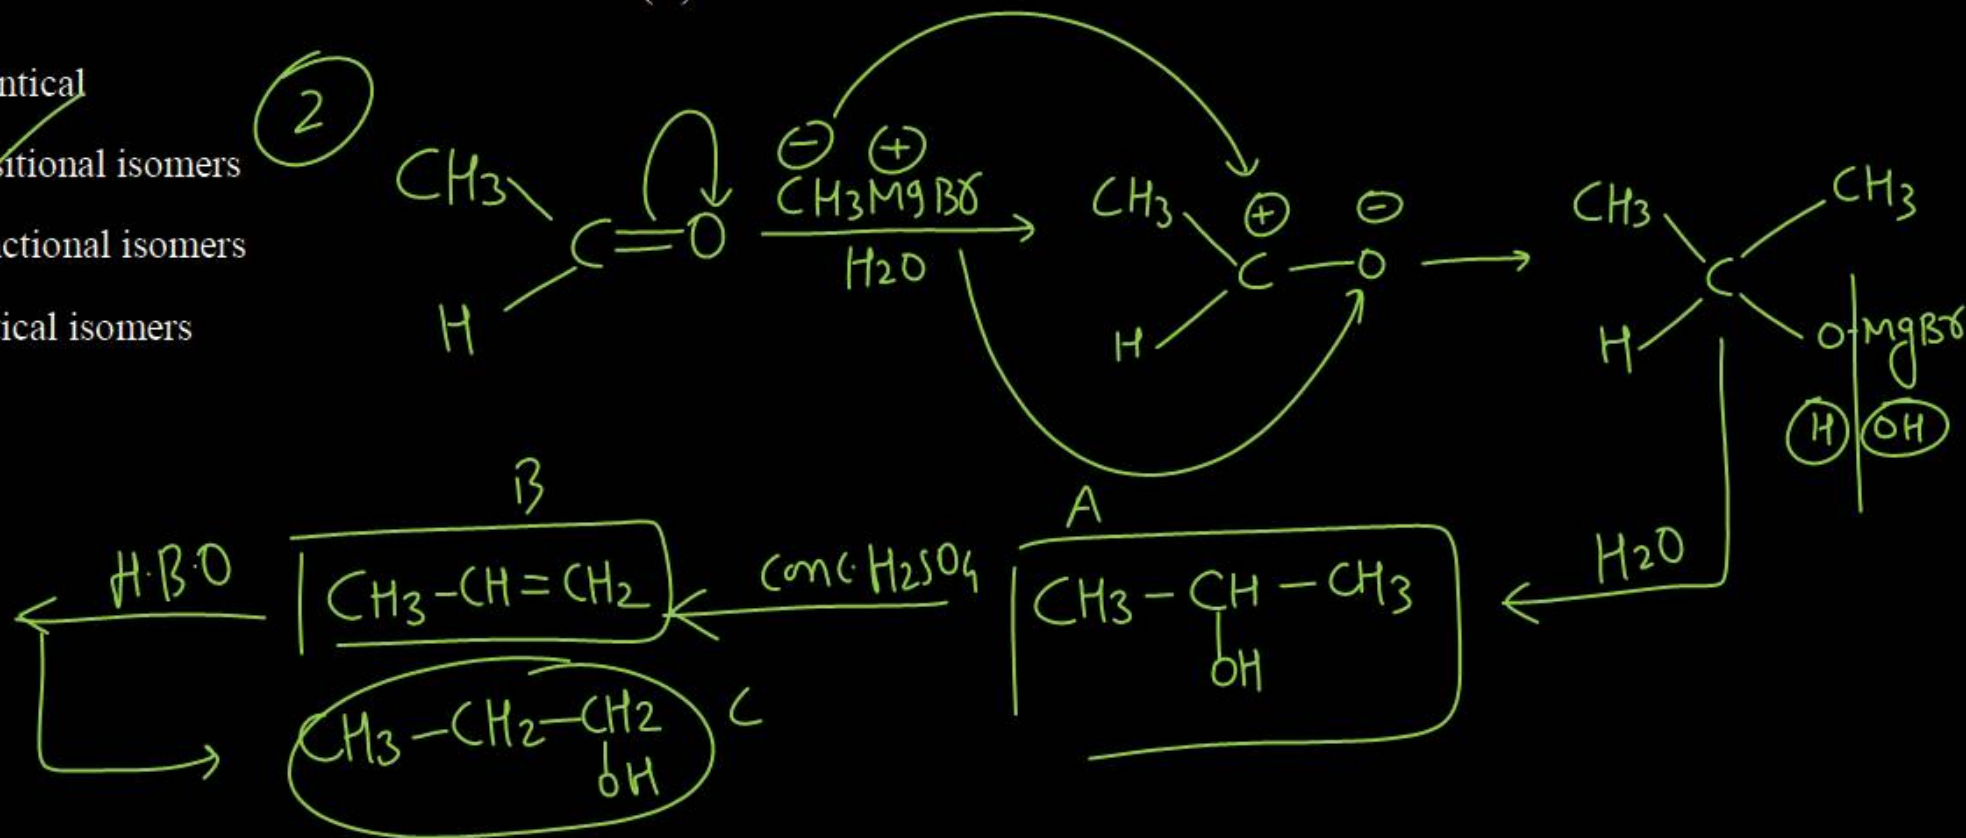 ntical
itional isomers
ctional isomers
ical isomers
2
CH3
C=O
H
⊖ ⊕
CH3MgBr
H2O
CH3 ⊕ ⊖
C-O
H
CH3 CH3
C
H O MgBr
H OH
H2O
A
CH3-CH-CH3
OH
Conc. H2SO4
B
CH3-CH=CH2
H.B.O
CH3-CH2-CH2 C
OH